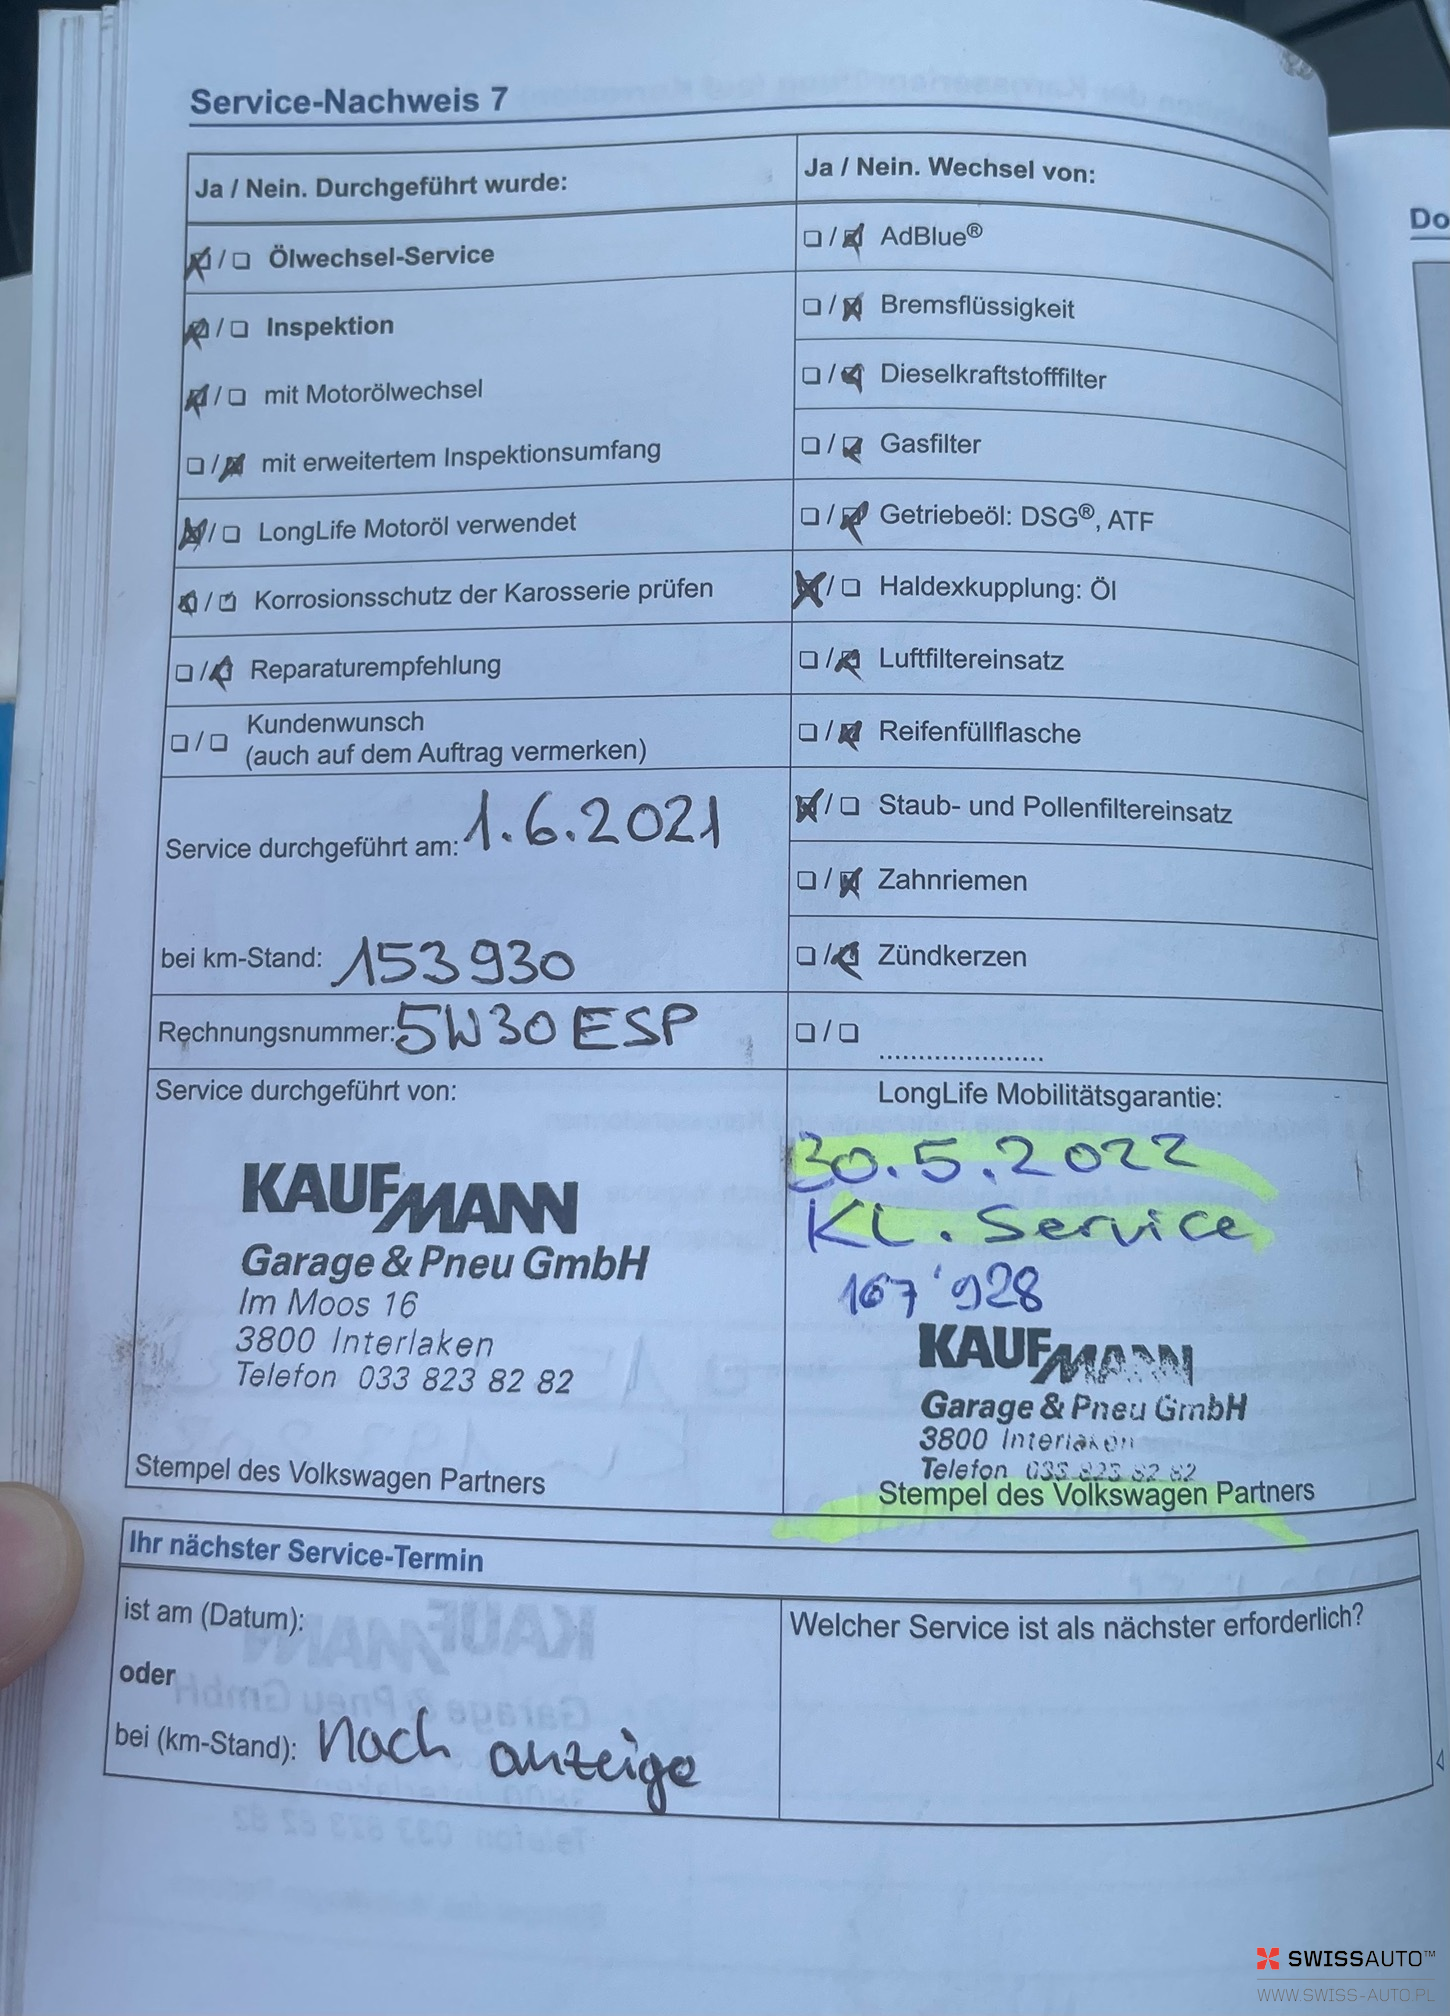 Service-Nachweis 7
Ja / Nein. Durchgeführt wurde:
Ölwechsel-Service
Inspektion
mit Motorölwechsel
mit erweitertem Inspektionsumfang
LongLife Motoröl verwendet
Korrosionsschutz der Karosserie prüfen
Reparaturempfehlung
Kundenwunsch
(auch auf dem Auftrag vermerken)
Service durchgeführt am: 1.6.2021
bei km-Stand: 153930
Rechnungsnummer: 5W30 ESP
Service durchgeführt von:
KAUFMANN
Garage & Pneu GmbH
Im Moos 16
3800 Interlaken
Telefon 033 823 82 82
Stempel des Volkswagen Partners
Ja / Nein. Wechsel von:
AdBlue®
Bremsflüssigkeit
Dieselkraftstofffilter
Gasfilter
Getriebeöl: DSG®, ATF
Haldexkupplung: Öl
Luftfiltereinsatz
Reifenfüllflasche
Staub- und Pollenfiltereinsatz
Zahnriemen
Zündkerzen
LongLife Mobilitätsgarantie:
30.5.2022
KL. Service
167'928
KAUFMANN
Garage & Pneu GmbH
3800 Interlaken
Telefon 033 823 82 82
Stempel des Volkswagen Partners
Ihr nächster Service-Termin
ist am (Datum):
oder
bei (km-Stand): nach anzeige
Welcher Service ist als nächster erforderlich?
Do
SWISSAUTO™
WWW.SWISS-AUTO.PL